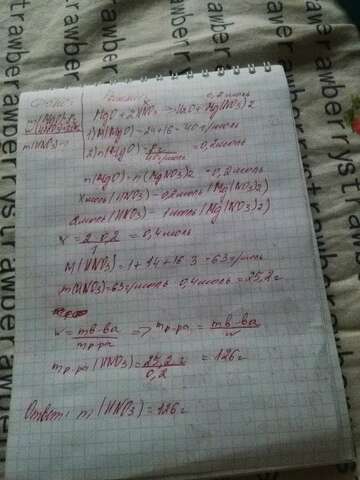 Дано:
Решение:
0,2 моль
m(MgO)=8г
MgO + 2HNO3 → H2O + Mg(NO3)2
m(HNO3)-?
1) M(MgO) - 24+16 - 40 г/моль
2) n(MgO) = 8г / 40 г/моль = 0,2 моль
n(MgO) = n(Mg(NO3)2 = 0,2 моль
X моль (HNO3) - 0,2 моль (Mg(NO3)2)
2 моль (HNO3) - 1 моль (Mg(NO3)2)
X = 2·0,2 / 1 = 0,4 моль
M(HNO3) = 1+14+16·3 = 63 г/моль
m(HNO3) = 63 г/моль · 0,4 моль = 25,2 г
w = mв-ва / mр-ра => mр-ра = mв-ва / w
mр-ра (HNO3) = 25,2 г / 0,2 = 126 г
Ответ: m (HNO3) = 126 г